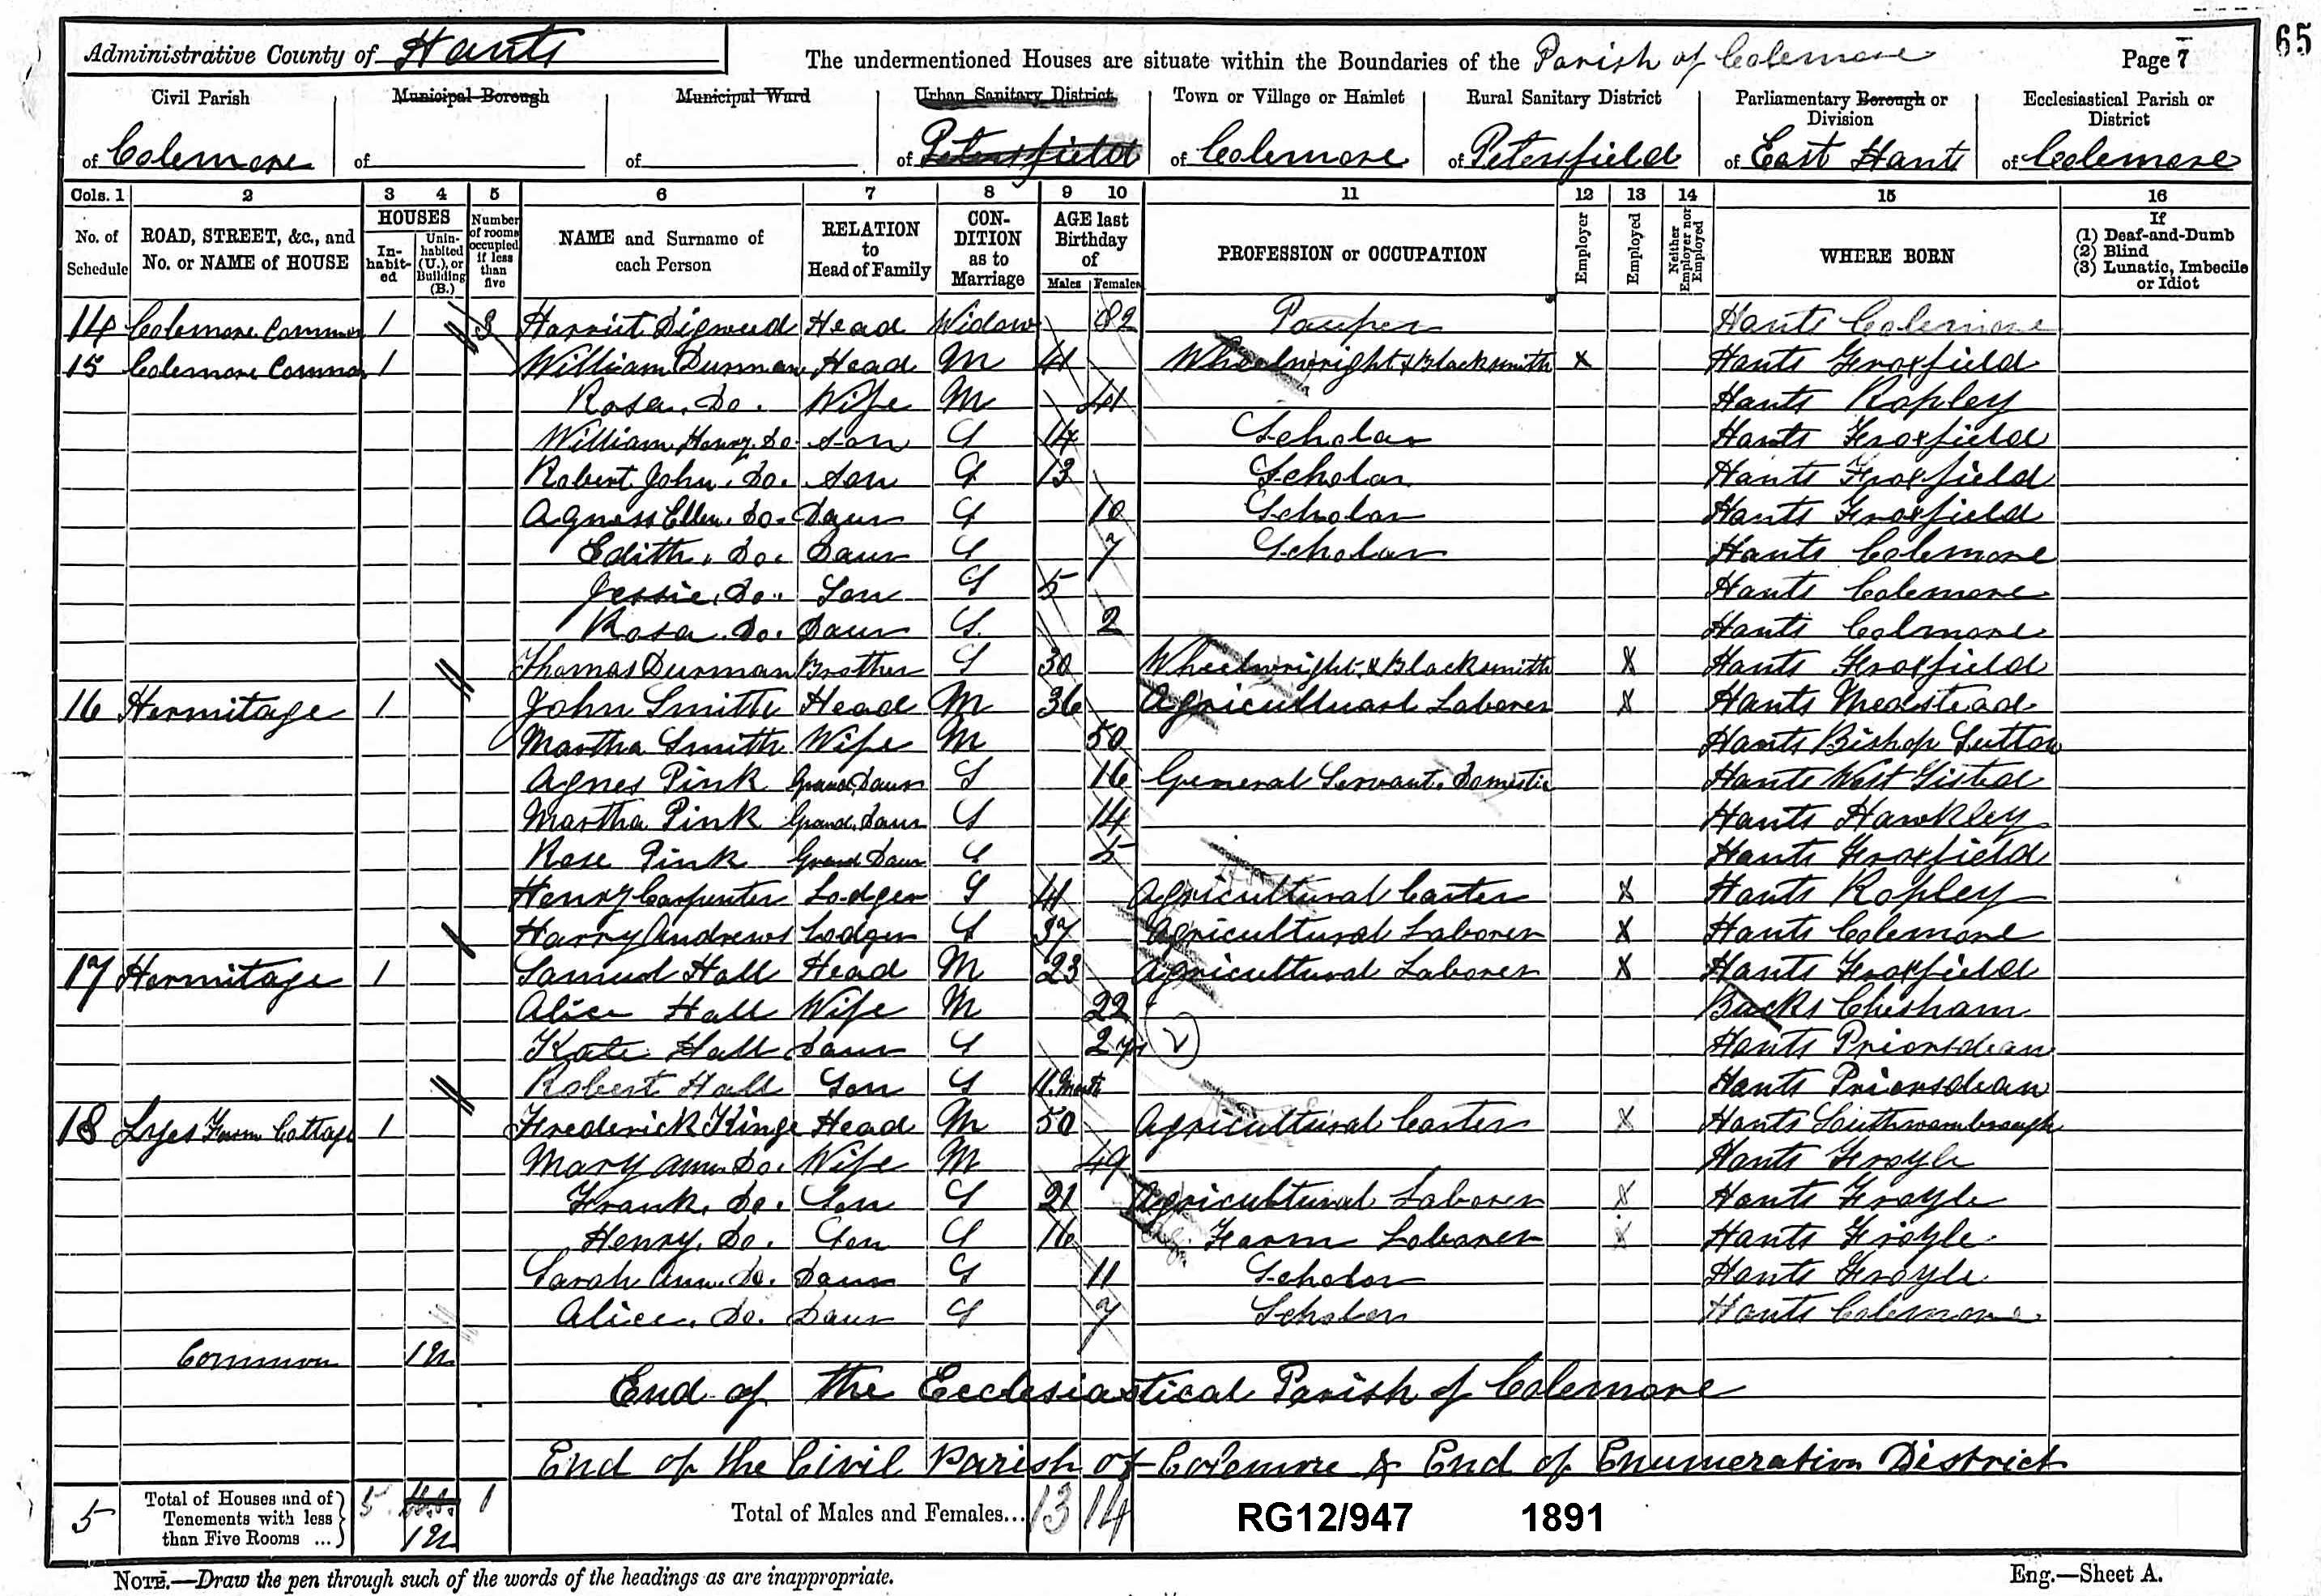 65
Administrative County of Hants The undermentioned Houses are situate within the Boundaries of the Parish of Colemore Page 7
Civil Parish Municipal Borough Municipal Ward Urban Sanitary District Town or Village or Hamlet Rural Sanitary District Parliamentary Borough or Division Ecclesiastical Parish or District
of Colemore of of of Petersfield of Colemore of Petersfield of East Hants of Colemore
Cols. 1 2 3 4 5 6 7 8 9 10 11 12 13 14 15 16
No. of Schedule ROAD, STREET, &c., and No. or NAME of HOUSE HOUSES Inhabited Uninhabited (U.), or Building (B.) Number of rooms occupied if less than five NAME and Surname of each Person RELATION to Head of Family CONDITION as to Marriage AGE last Birthday of Males Females PROFESSION or OCCUPATION Employer Employed Neither Employer nor Employed WHERE BORN If (1) Deaf-and-Dumb (2) Blind (3) Lunatic, Imbecile or Idiot
14 Colemore Common 1 3 Harriet Digweed Head Widow 82 Pauper Hants Colemore
15 Colemore Common 1 William Durman Head M 41 Wheelwright & Blacksmith X Hants Froxfield
Rosa. Do. Wife M 41 Hants Ropley
William Henry. Do. Son S 14 Scholar Hants Froxfield
Robert John. Do. Son S 13 Scholar Hants Froxfield
Agness Ellen. Do. Daur S 10 Scholar Hants Froxfield
Edith. Do. Daur S 7 Scholar Hants Colemore
Jessie. Do. Son S 5 Hants Colemore
Rosa. Do. Daur S. 2 Hants Colmore
Thomas Durman Brother S 30 Wheelwright & Blacksmith X Hants Froxfield
16 Hermitage 1 John Smith Head M 36 Agricultuarl Laborer X Hants Medstead
Martha Smith Wife M 50 Hants Bishop Sutton
Agnes Pink Grand Daur S 16 General Servant. Domestic Hants West Tisted
Martha Pink Grand. Daur S 14 Hants Hawkley
Rose Pink Grand Daur S 5 Hants Froxfield
Henry Carpenter Lodger S 41 Agricultural Carter X Hants Ropley
Harry Andrews Lodger S 37 Agricultural Laborer X Hants Colemore
17 Hermitage 1 Samuel Hall Head M 23 Agricultural Laborer X Hants Froxfield
Alice Hall Wife M 22 Bucks Chesham
Kate Hall Daur S 2 Hants Priorsdean
Robert Hall Son S 11 Months Hants Priorsdean
18 Lyes Farm Cottage 1 Frederick Kinge Head M 50 Agricultural Carter X Hants Southwarnbrough
Mary Ann. Do. Wife M 49 Hants Froyle
Frank. Do. Son S 21 Agricultural Laborer X Hants Froyle
Henry. Do. Son S 16 Farm Laborer X Hants Froyle
Sarah Ann. Do. Daur S 11 Scholar Hants Froyle
Alice. Do. Daur S 7 Scholar Hants Colemore
Common 1 U
End of the Ecclesiastical Parish of Colemore
End of the Civil Parish of Colemore & End of Enumeration District
5 Total of Houses and of Tenements with less than Five Rooms ... 5 1 U 1 Total of Males and Females... 13 14 RG12/947 1891
NOTE.—Draw the pen through such of the words of the headings as are inappropriate. Eng.—Sheet A.